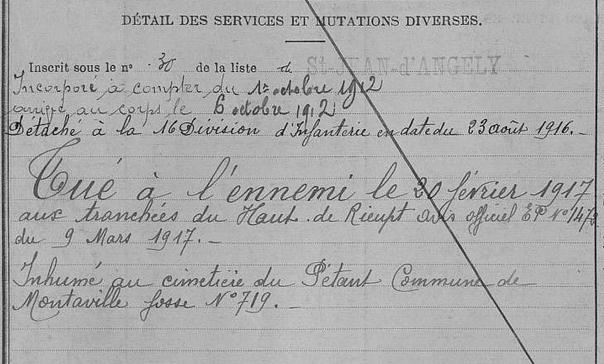 DÉTAIL DES SERVICES ET MUTATIONS DIVERSES.
Inscrit sous le n° 30 de la liste de St-JEAN-d'ANGELY
Incorporé à compter du 1er octobre 1912
arrivé au corps le 6 octobre 1912
Détaché à la 16 Division d'Infanterie en date du 23 août 1916.-
Tué à l'ennemi le 20 février 1917
aux tranchées du Haut de Rieupt avis officiel EP N°1473
du 9 Mars 1917.-
Inhumé au cimetière du Pétant Commune de
Montaville fosse N°719.-